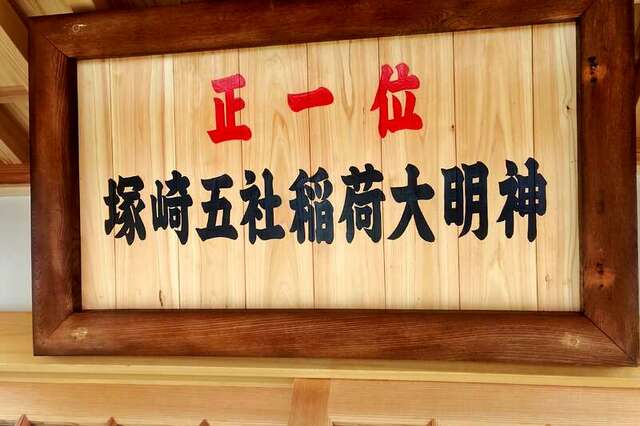 正一位
塚崎五社稲荷大明神